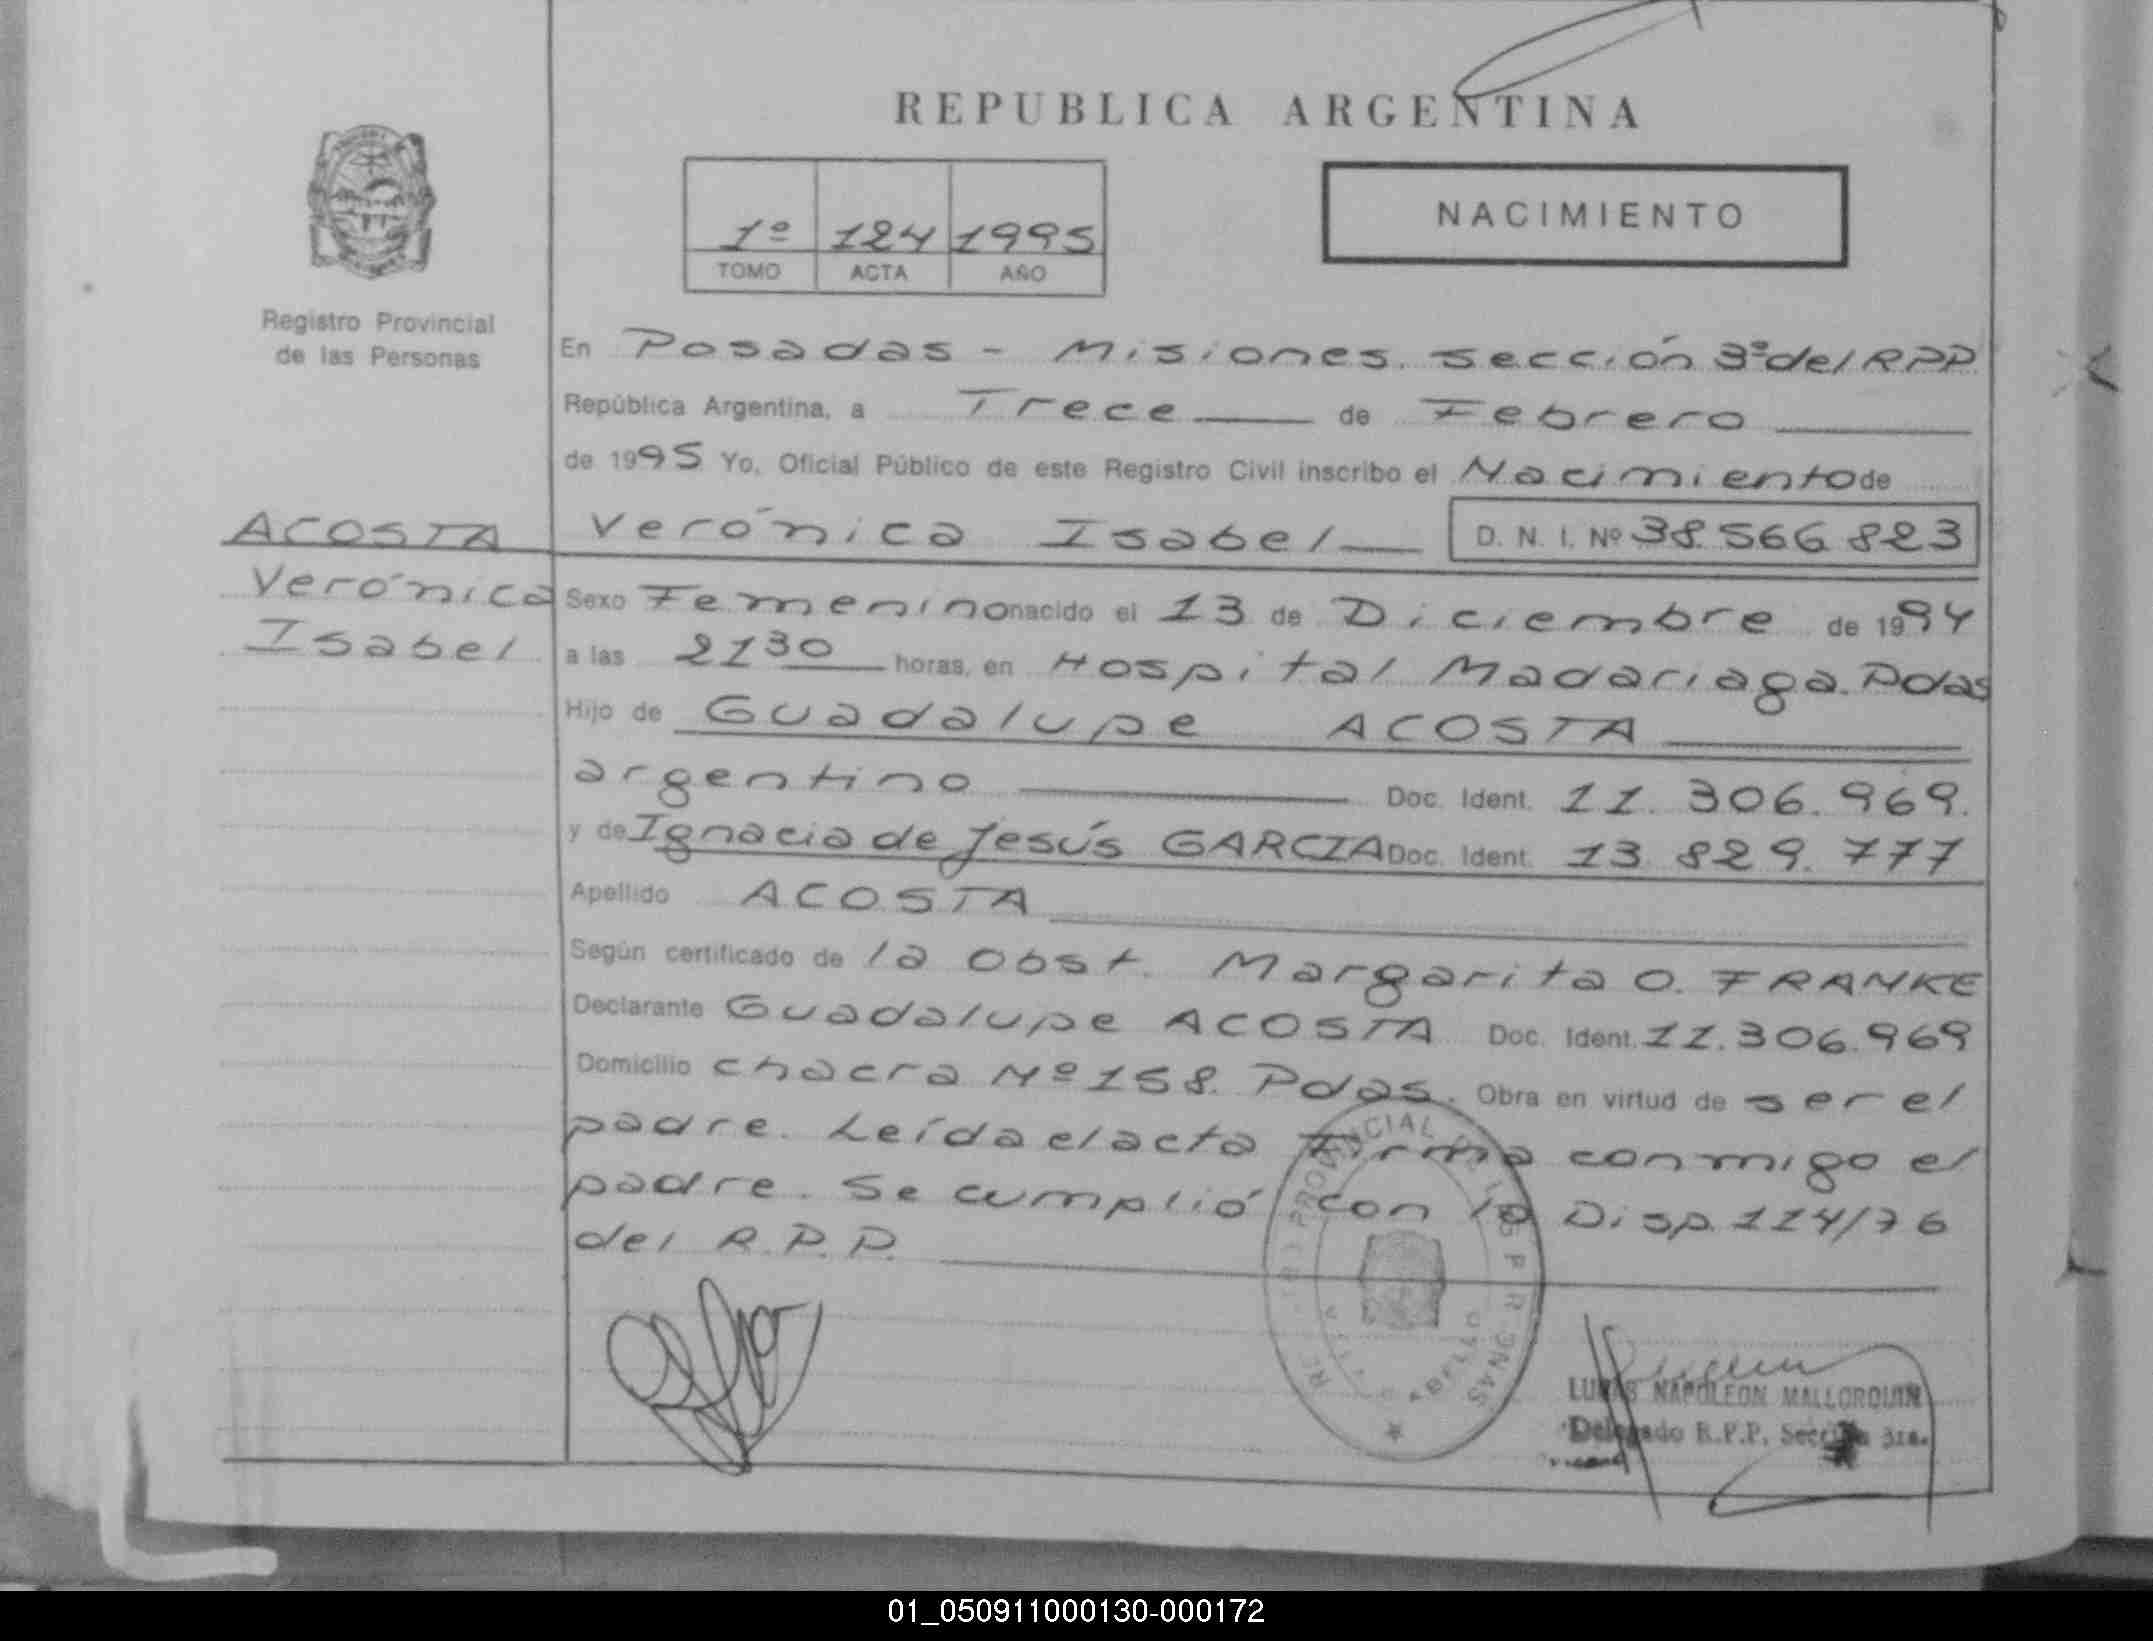 REPUBLICA ARGENTINA
1º 124 1995
TOMO ACTA AÑO
NACIMIENTO
Registro Provincial
de las Personas
En Posadas - Misiones. Sección 3ª del RPP.
República Argentina, a Trece de Febrero
de 1995 Yo, Oficial Público de este Registro Civil inscribo el Nacimiento de
ACOSTA
Verónica
Isabel
Verónica Isabel D. N. I. Nº 38.566.823
Sexo Femenino nacido el 13 de Diciembre de 1994
a las 21 30 horas, en Hospital Madariaga. Pdas
Hijo de Guadalupe ACOSTA
argentino Doc. Ident. 11.306.969.
y de Ignacia de Jesús GARCIA Doc. Ident. 13.829.777
Apellido ACOSTA
Según certificado de la Obst. Margarita O. FRANKE
Declarante Guadalupe ACOSTA Doc. Ident. 11.306.969
Domicilio chacra Nº 158. Pdas. Obra en virtud de ser el
padre. Leída el acta Firma conmigo el
padre. Se cumplió con la Disp. 114/76
del R.P.P.
LUKAS NAPOLEON MALLORQUIN
Delegado R.P.P. Sección 3ra.
01_050911000130-000172